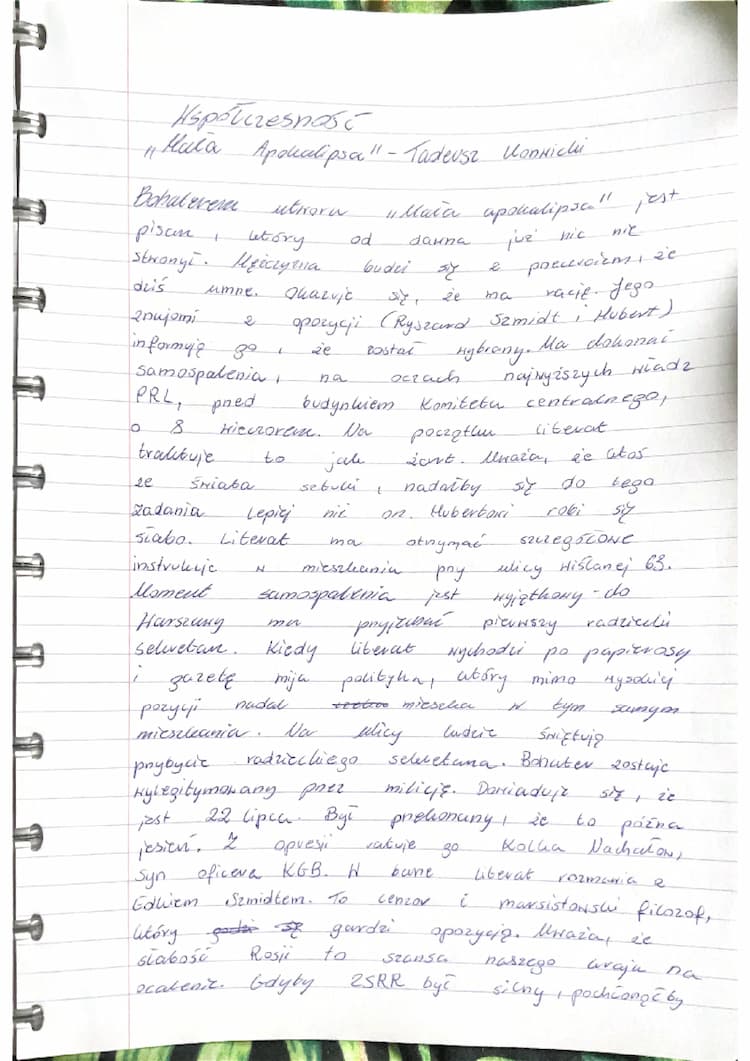 Współczesność
„Mała Apokalipsa" - Tadeusz Konwicki
Bohaterem utworu „Mała apokalipsa" jest
pisarz, który od dawna już nic nie
stworzył. Mężczyzna budzi się z poczuciem, że
dziś umrze. Okazuje się, że ma rację. Jego
znajomi z opozycji (Ryszard Szmidt i Hubert)
informują go, że został wybrany. Ma dokonać
samospalenia, na oczach najwyższych władz
PRL, przed budynkiem Komitetu centralnego,
o 8 wieczorem. Na początku literat
traktuje to jak żart. Uważa, że ktoś
ze świata sztuki, nadałby się do tego
zadania lepiej niż on. Hubertowi robi się
słabo. Literat ma otrzymać szczegółowe
instrukcje w mieszkaniu przy ulicy Wiślanej 63.
Moment samospalenia jest wyjątkowy - do
Warszawy ma przyjechać pierwszy radziecki
sekretarz. Kiedy literat wychodzi po papierosy
i gazetę mija polityka, który mimo wysokiej
pozycji nadal mieszka w tym samym
mieszkaniu. Na ulicy ludzie świętują
przybycie radzieckiego sekretarza. Bohater zostaje
wylegitymowany przez milicję. Dowiaduje się, że
jest 22 lipca. Był przekonany, że to późna
jesień. Z opresji ratuje go Kolka Nachałow,
syn oficera KGB. W barze literat rozmawia z
Edkiem Szmidtem. To cenzor i marsistowski filozof,
który gardzi opozycją. Uważa, że
słabość Rosji to szansa naszego kraju na
ocalenie. Gdyby ZSRR był silny, pochłonąłby